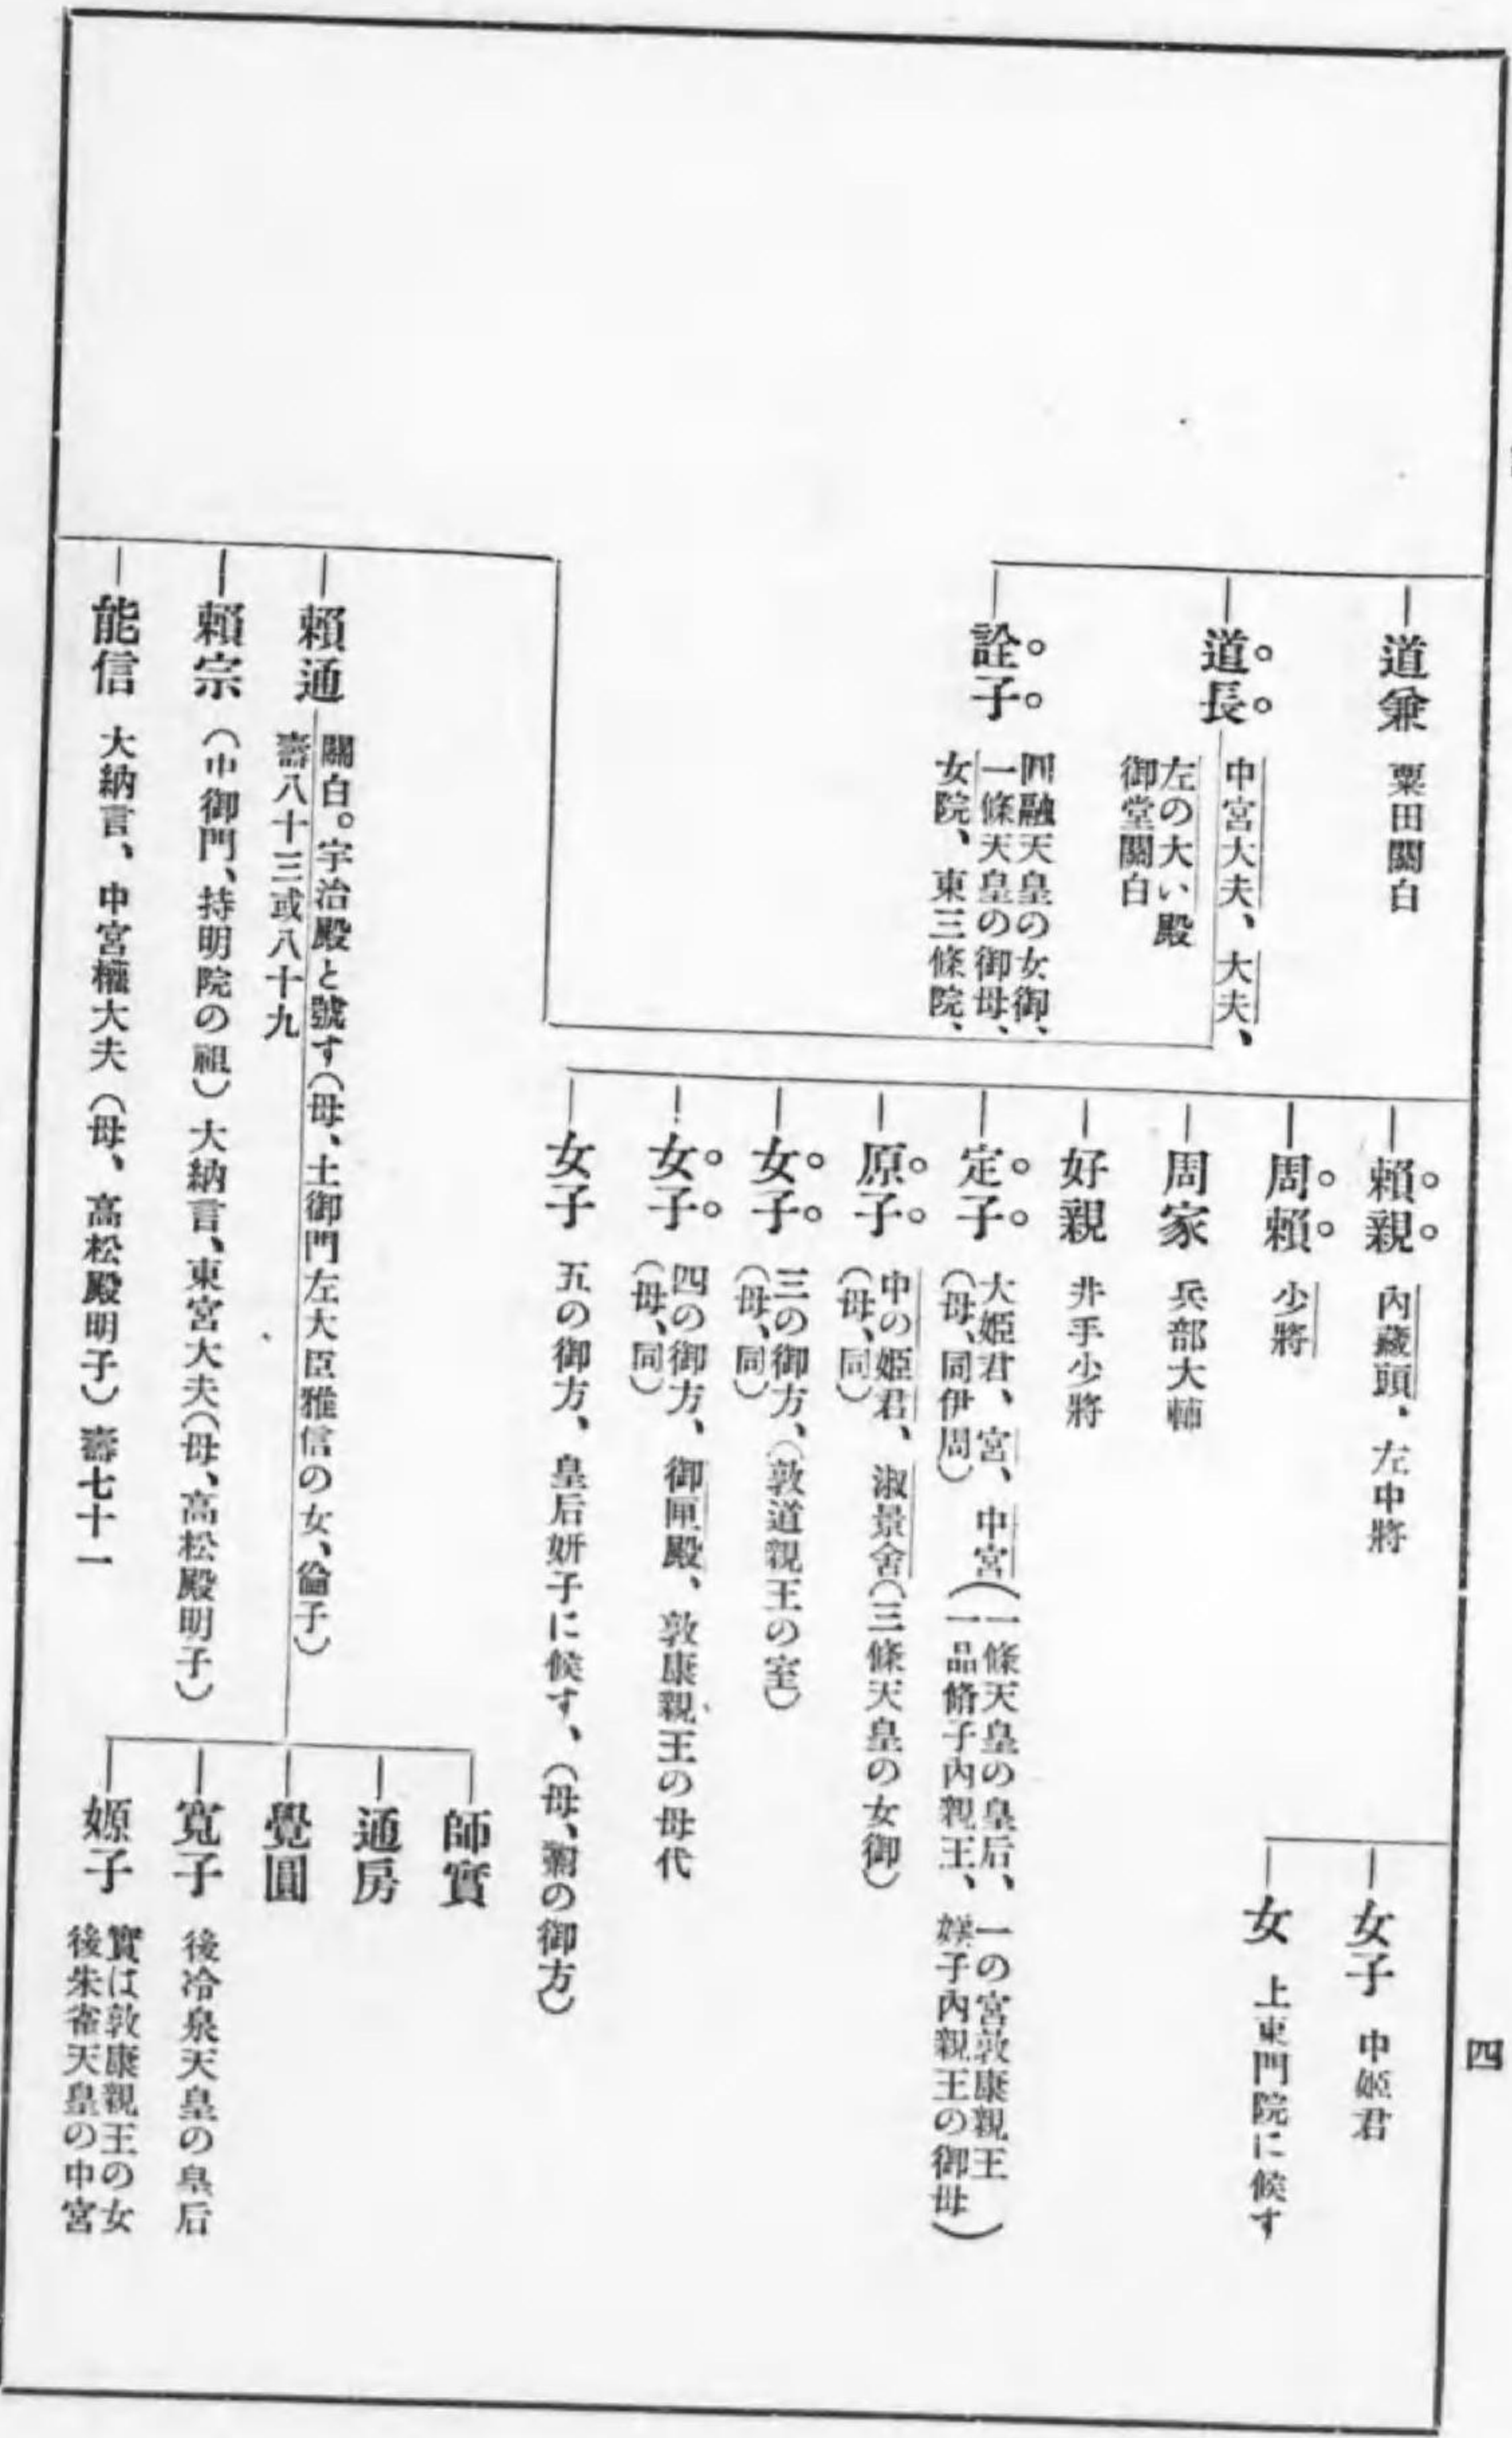 四
道兼 粟田關白
道長 中宮大夫、大夫、
左の大い殿
御堂關白
詮子 四融天皇の女御、
一條天皇の御母、
女院、東三條院、
女子 中姬君
女 上東門院に候す
賴親 內藏頭、左中將
周賴 少將
周家 兵部大輔
好親 井手少將
定子 大姬君、宮、中宮(一條天皇の皇后、一の宮敦康親王
一品脩子內親王、媄子內親王の御母)
(母、同伊周)
原子 中の姬君、淑景舍(三條天皇の女御)
(母、同)
女子 三の御方、(敦道親王の室)
(母、同)
女子 四の御方、御匣殿、敦康親王の母代
(母、同)
女子 五の御方、皇后姸子に候す、(母、の御方)
賴通 關白。宇治殿と號す(母、土御門左大臣雅信の女、倫子)
壽八十三或八十九
賴宗 (中御門、持明院の祖)大納言、東宮大夫(母、高松殿明子)
能信 大納言、中宮權大夫(母、高松殿明子)壽七十一
師實
通房
覺圓
寬子 後冷泉天皇の皇后
嫄子 實は敦康親王の女
後朱雀天皇の中宮